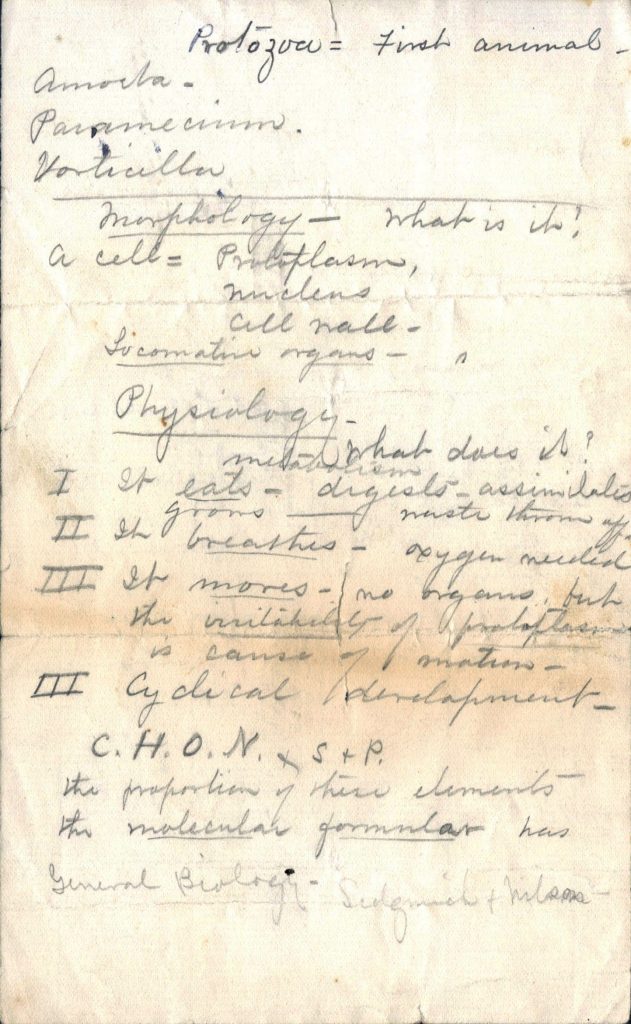 Protōzoa = First animal -
Amoeba -
Paramecium.
Vorticella
Morphology - What is it?
A cell = Protoplasm,
nucleus
Cell wall -
Locomotive organs -
Physiology -
What does it?
metabolism
I It eats - digests - assimilates
grows — waste thrown off
II It breathes - oxygen needed
III It moves - no organs, but
the irritability of protoplasm
is cause of motion -
III Cyclical development -
C. H. O. N. + S + P.
the proportion of these elements
the molecular formular has
General Biology - Sedgwick & Wilson -